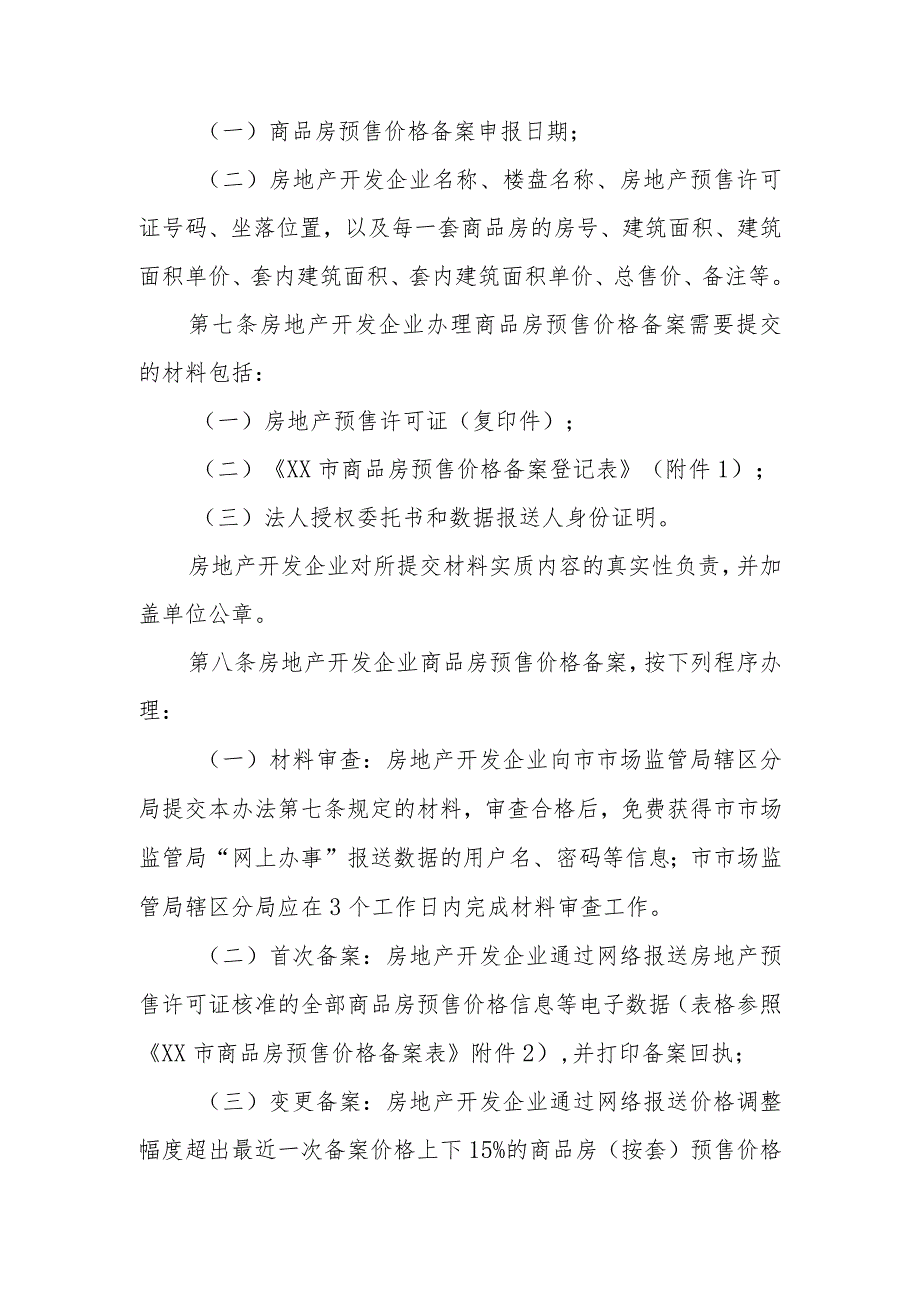 （一）商品房预售价格备案申报日期；
（二）房地产开发企业名称、楼盘名称、房地产预售许可
证号码、坐落位置，以及每一套商品房的房号、建筑面积、建筑
面积单价、套内建筑面积、套内建筑面积单价、总售价、备注等。
第七条房地产开发企业办理商品房预售价格备案需要提交
的材料包括：
（一）房地产预售许可证（复印件）；
（二）《XX市商品房预售价格备案登记表》（附件1）；
（三）法人授权委托书和数据报送人身份证明。
房地产开发企业对所提交材料实质内容的真实性负责，并加
盖单位公章。
第八条房地产开发企业商品房预售价格备案，按下列程序办
理：
（一）材料审查：房地产开发企业向市市场监管局辖区分
局提交本办法第七条规定的材料，审查合格后，免费获得市市场
监管局“网上办事”报送数据的用户名、密码等信息；市市场监
管局辖区分局应在3个工作日内完成材料审查工作。
（二）首次备案：房地产开发企业通过网络报送房地产预
售许可证核准的全部商品房预售价格信息等电子数据（表格参照
《XX市商品房预售价格备案表》附件2）,并打印备案回执；
（三）变更备案：房地产开发企业通过网络报送价格调整
幅度超出最近一次备案价格上下15%的商品房（按套）预售价格